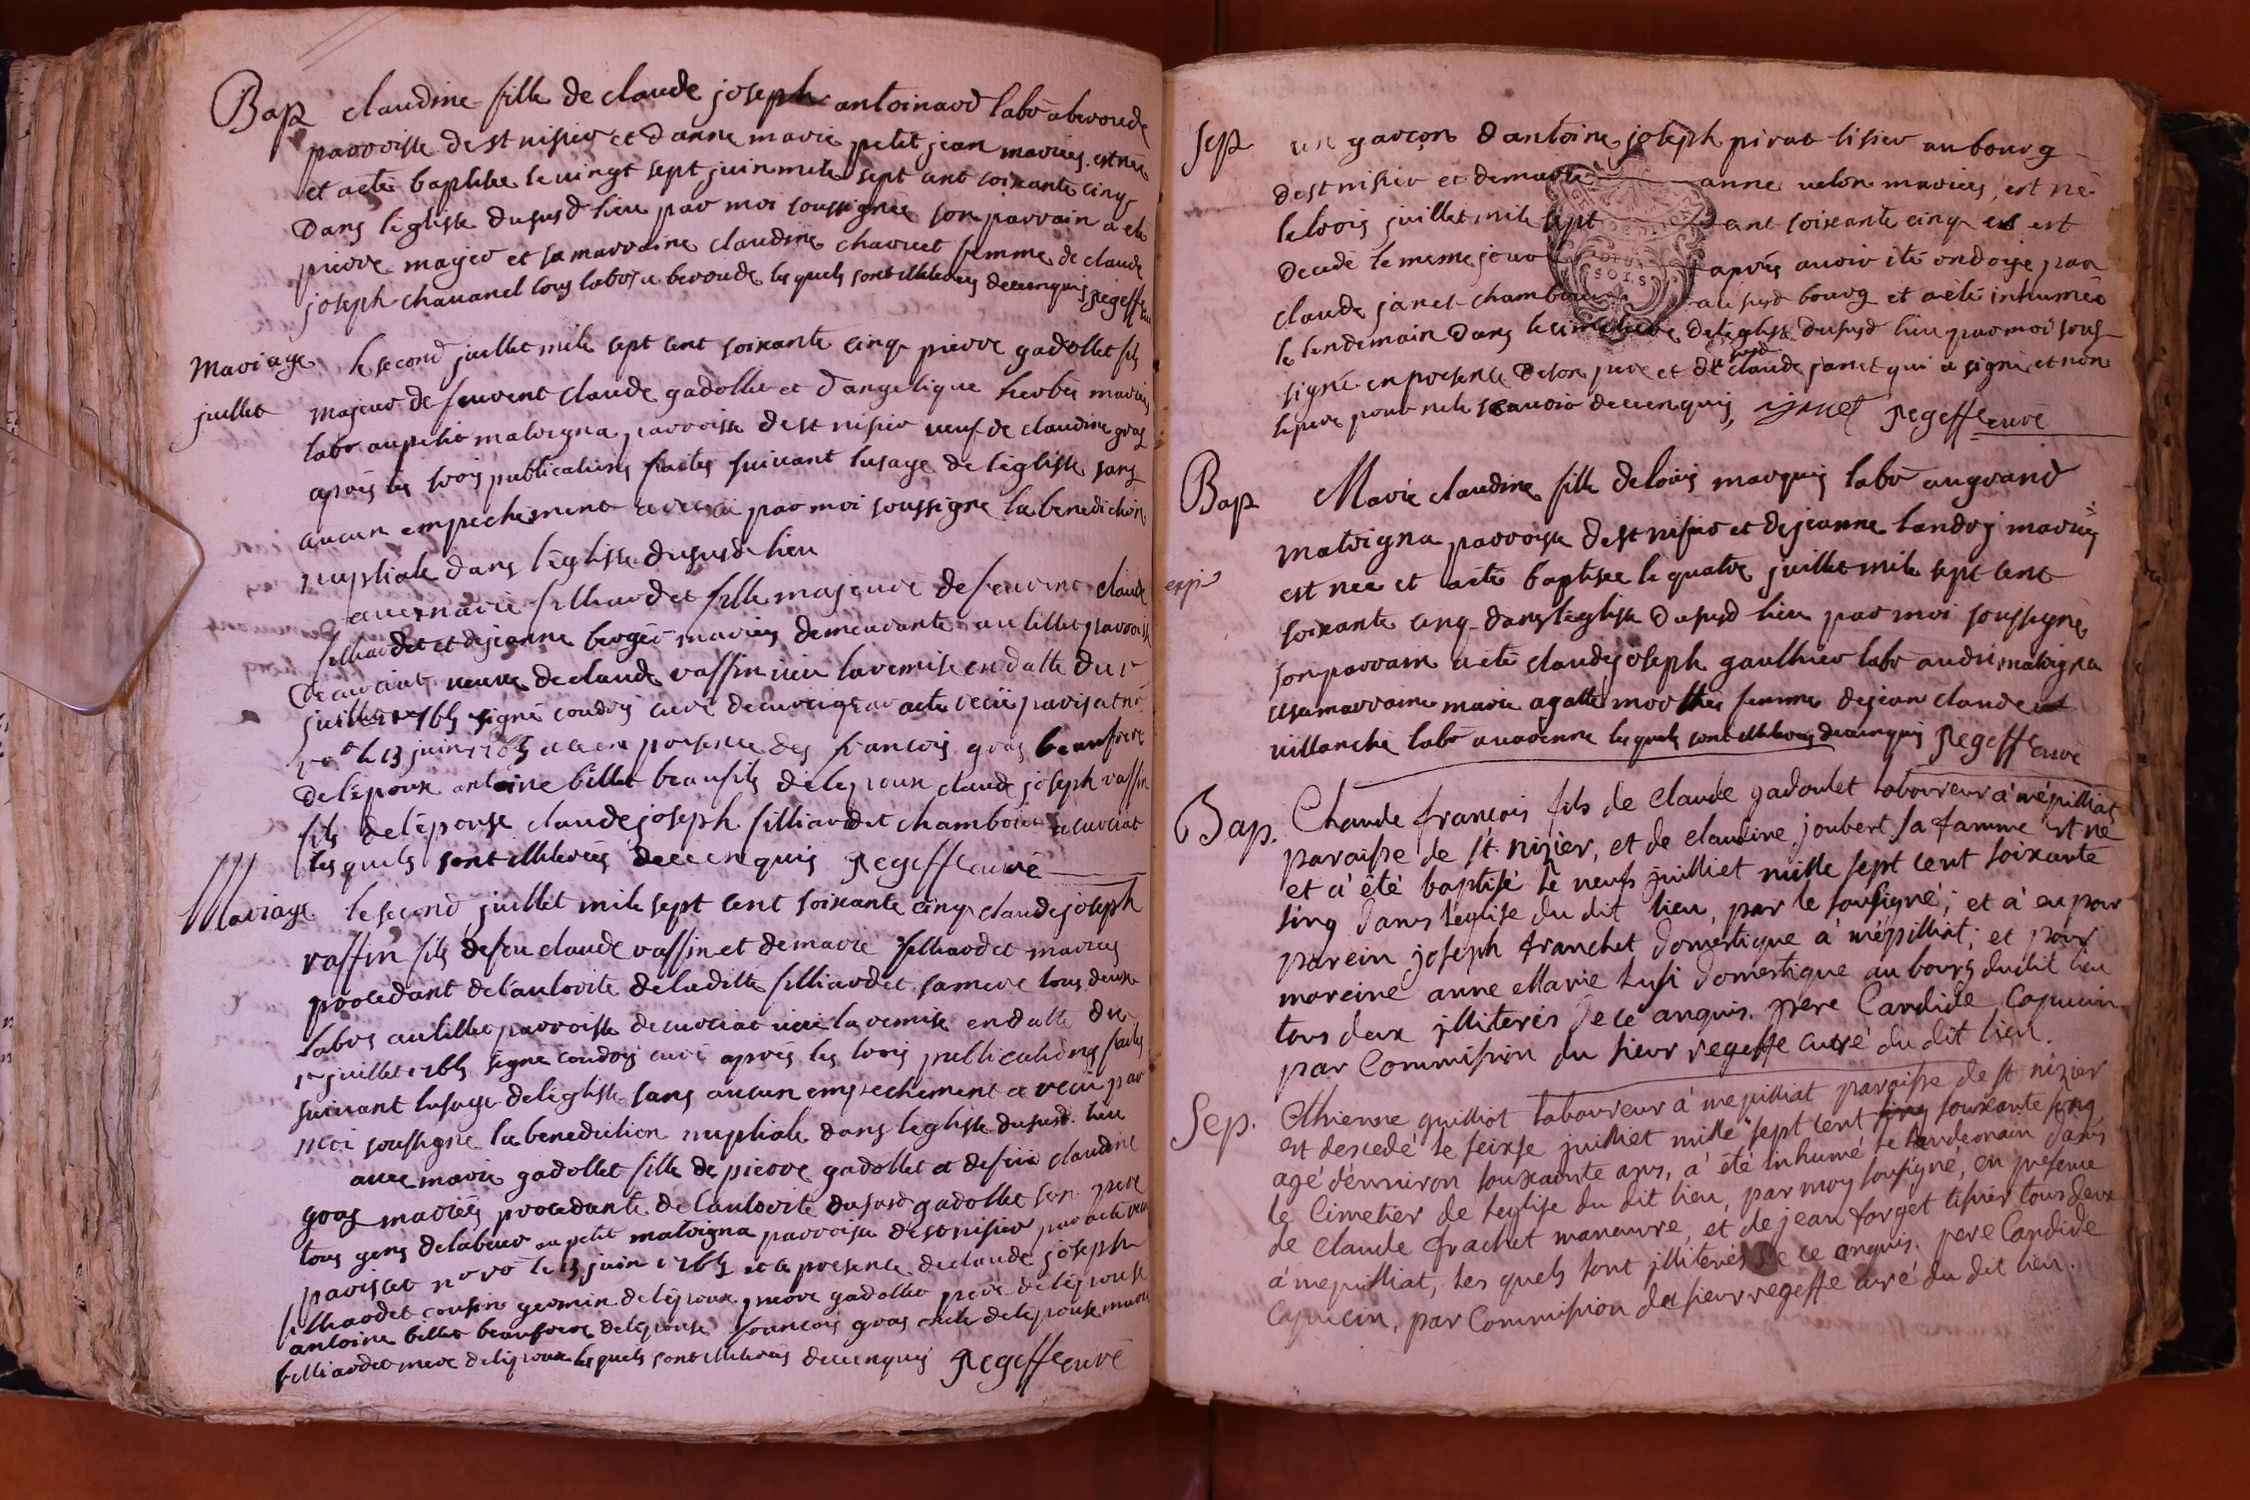 Bap claudine fille de claude joseph antoinard labr a beroude
parroisse de st nisier et d anne marie petit jean mariés est née
et a été baptisée le vingt sept juin mile sept cent soixante cinq
dans l'églisse dususd lieu par moi soussignée son parrain a été
pierre mayer et sa marraine claudine charvet femme de claude
joseph chavanel tous labrs a beroude les quels sont illiterés de ce enquis regeffe curé
Mariage le second juillet mile sept cent soixante cinq pierre gadollet fils
juillet majeur de feu vent claude gadollet et d'angelique herbet mariés
labr au petit malvigna parroisse de st nisier veuf de claudine gras
après les trois publications faites suivant lusage de l'églisse sans
aucun empechement a recu par moi soussigné la benediction
nuptiale dans l'églisse dususd lieu
avec marie filliardet fille majeure de feu vent claude
filliardet et de jeanne berger mariés demeurante au tillet parroisse
de curciat veuve de claude raffin vue la remise en datte du 1r
juillet 1765 signé coudoy curé de curciat acte recu parisat no
ro le 13 juin 1765 et ce en presence des francois gras beaufrere
de l'époux antoine billet beaufils de lepoux claude joseph raffin
fils de l'épouse claude joseph filliardet chamboir a curciat
les quels sont illiterés de ce enquis regeffe curé
Mariage le second juillet mile sept cent soixante cinq claude joseph
raffin fils de feu claude raffin et de marie filliardet mariés
procedant de l'autorite de laditte filliardet sa mere tous deux
labrs au tillet parroisse de curciat vue la remise en datte du
1er juillet 1765 signe coudoy curé après les trois publications faites
suivant lusage de l'églisse sans aucun empechement a recu par
moi soussigné la benediction nuptiale dans leglisse dususd. lieu
avec marie gadollet fille de pierre gadollet et de feue claudine
gras mariés procedante de l'autorite dususd gadollet son pere
tous gens de labeur au petit malvigna parroisse de st nisier par acte recu
parisat no ro le 13 juin 1765 et ce presence de claude joseph
filliardet cousin germin de l'époux, pierre gadollet pere de lepouse
antoine billet beaufrere de lepouse francois gras oncle de lepouse marie
filliardet mere de lepoux les quels sont illiterés de ce enquis regeffe curé
Sep un garçon d'antoine joseph pirat tisier au bourg
de st nisier et de marie anne velon mariés, est né
le trois juillet mile sept cent soixante cinq et est
decedé le meme jour après avoir été ondoyé par
claude janet chamboir au susd bourg et a été inhumée
le lendemain dans le cimetiere de l'églisse dususd lieu par moi sous
signé en presence de son pere et du susd claude janet qui a signé et non
le pere pour ne le scavoir de ce enquis, janet regeffe curé
Bap Marie claudine fille de loüis marquis labr au grand
malvigna parroisse de st nisier et de jeanne landoy mariés
expé est née et a été baptisee le quatre juillet mile sept cent
soixante cinq dans leglisse dususd lieu par moi soussigné
son parrain a été claude joseph gaulthier labr audit malvigna
et sa marraine marie agatte morthier femme de jean claude
villanche labr a varenne les quels sont illiterés de ce enquis regeffe curé
Bap. Claude françois fils de claude gadoulet laboureur à mépilliat
paraisse de st. nizier, et de claudine joubert sa famme est né
et à été baptisé le neufs juilliet mille sept cent soixante
sinq dans l'eglise du dit lieu, par le sousigné; et à eu pour
parein joseph franchet domestique à mépilliat; et pour
mareine anne Marie Lusi domestique au bourg dudit lieu
tous deux illiterés de ce anquis. pere Candide Capucin
par Commission du sieur regeffe curé du dit lieu.
Sep. Ethienne guilliot laboureur à mepilliat paraisse de st nizier
est descedé le seixse juilliet mille sept cent sinq souxante sinq
agé d'enniron souxainte ans, à été inhumé le lendemain dans
le Cimetier de l'eglise du dit lieu, par moy sousigné, en presence
de Claude frachet maneuvre, et de jean forget tisier tous deux
à mepilliat, les quels sont illiterés de ce anquis. pere Candide
Capucin, par Commission du sieur regeffe curé du dit lieu.